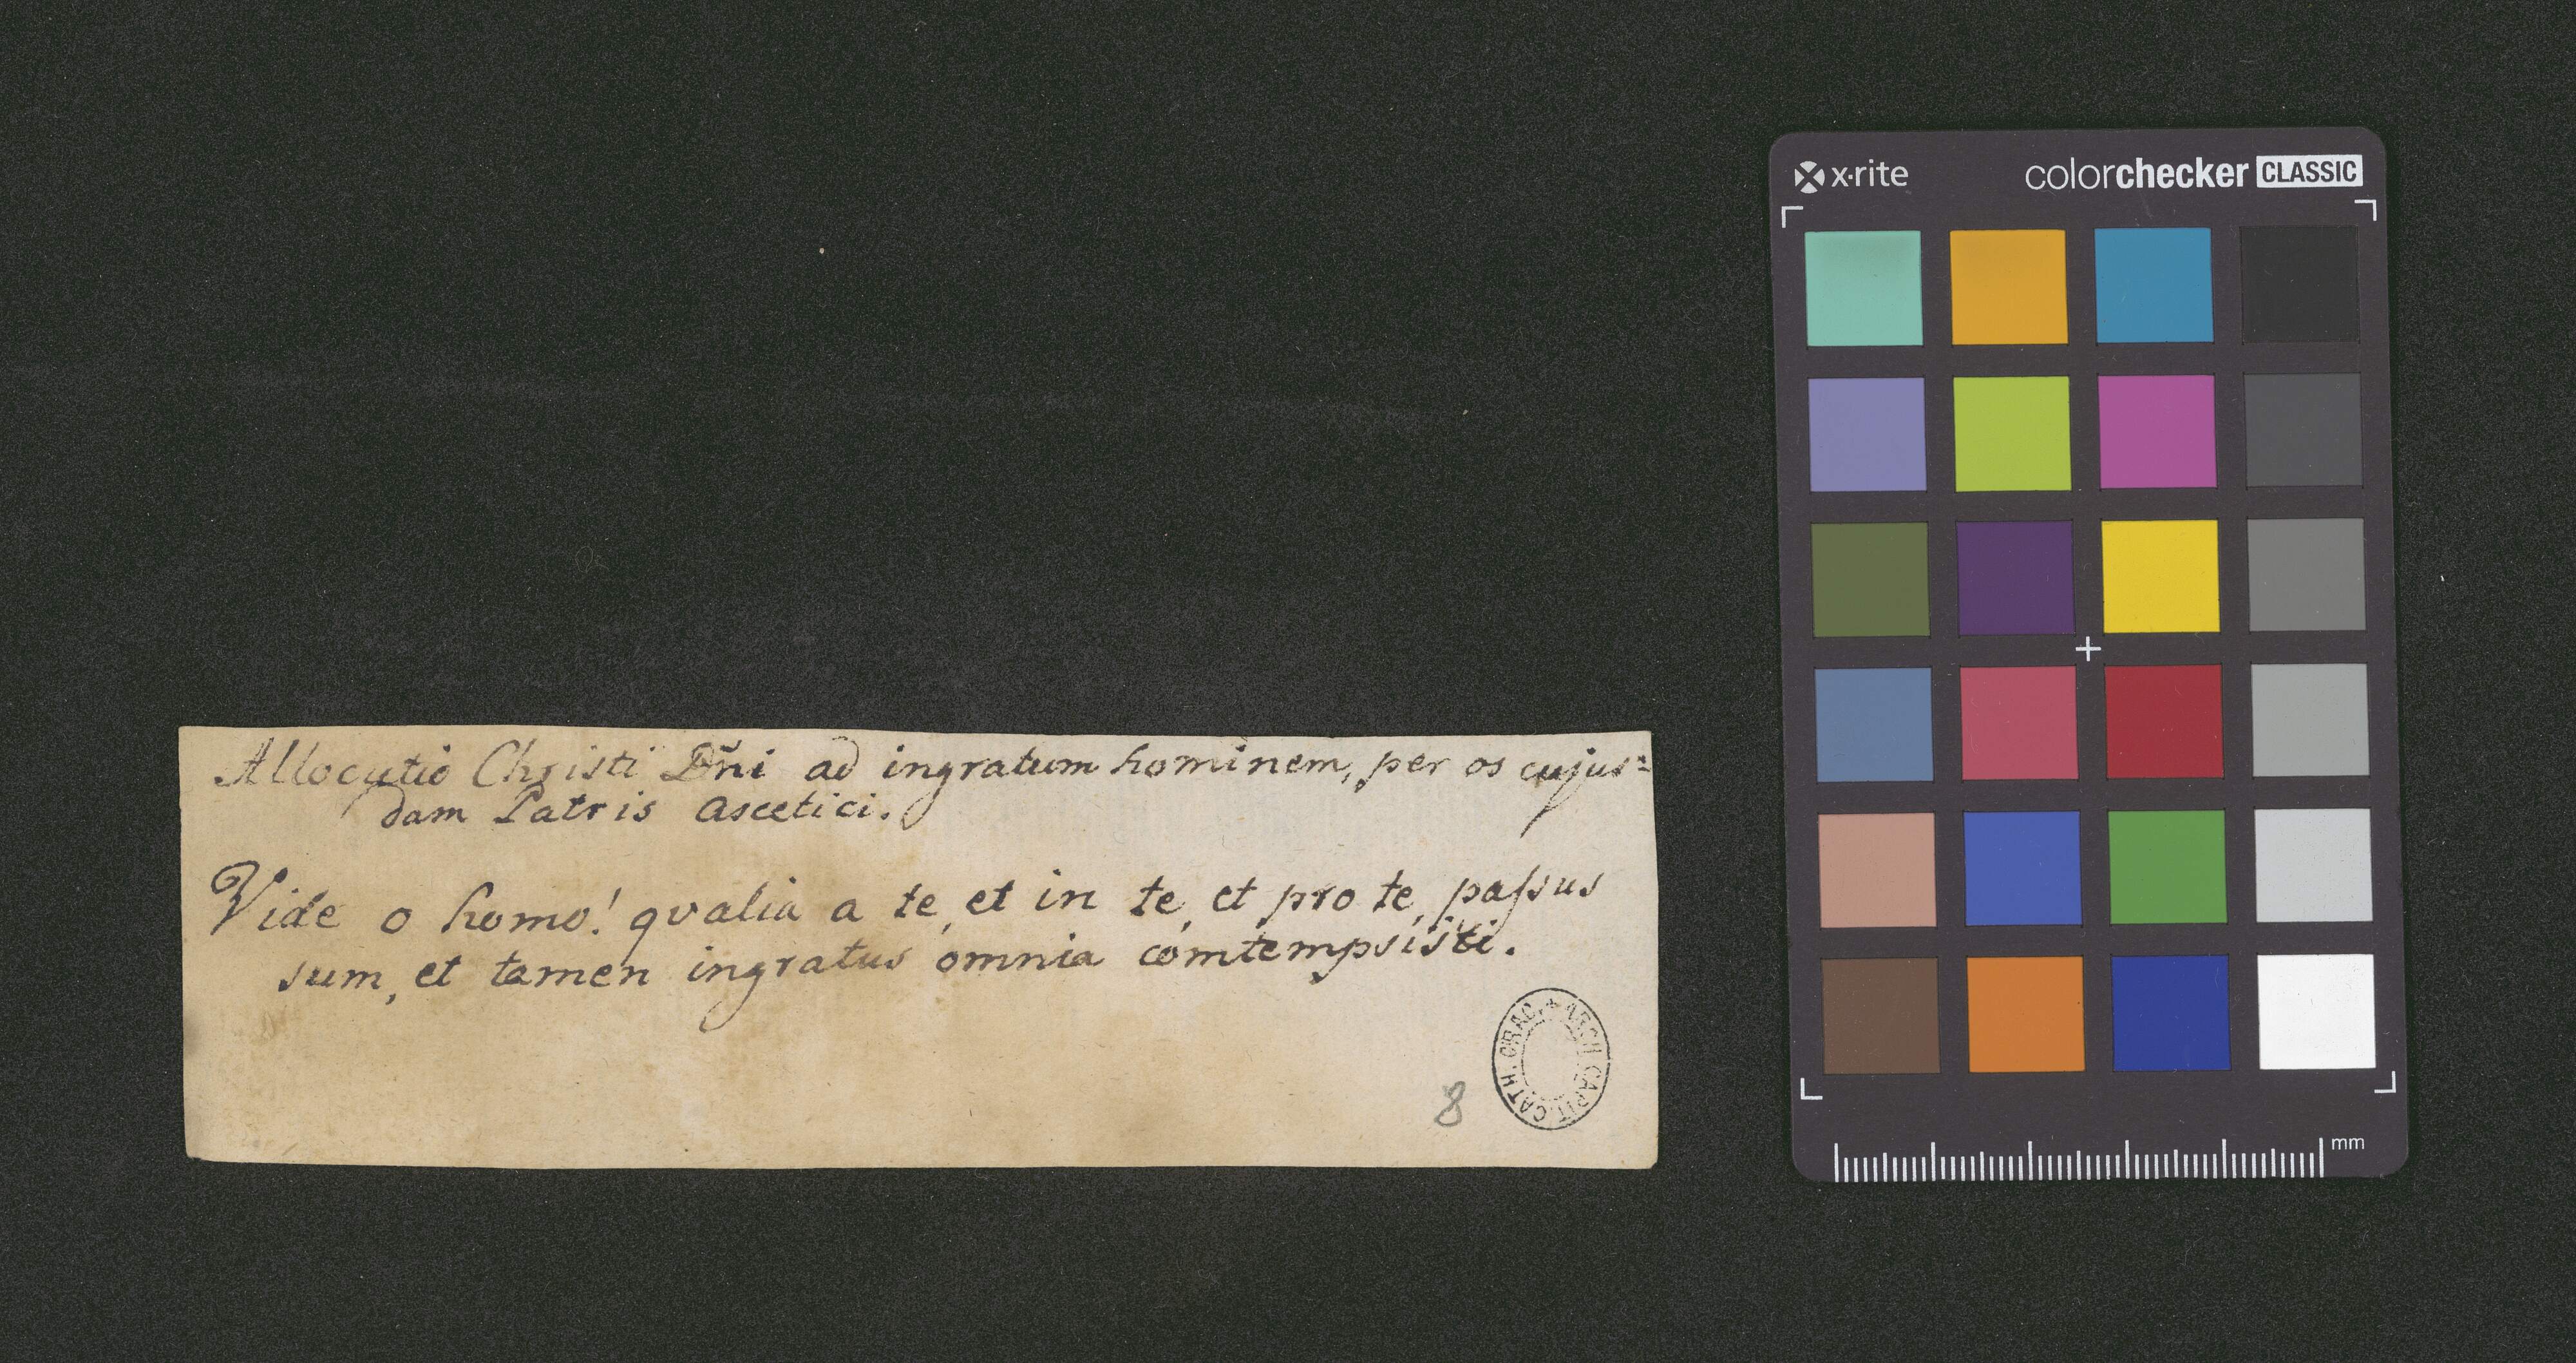 Allocutio Christi Dn̄i ad ingratum hominem, per os cujus=
dam Patris ascetici.
Vide o homo! qvalia a te, et in te, et pro te, paſsus
sum, et tamen ingratus omnia comtempsisti.
8
ARCH. CAPIT. CATH. CRAC.
x·rite
colorchecker CLASSIC
mm